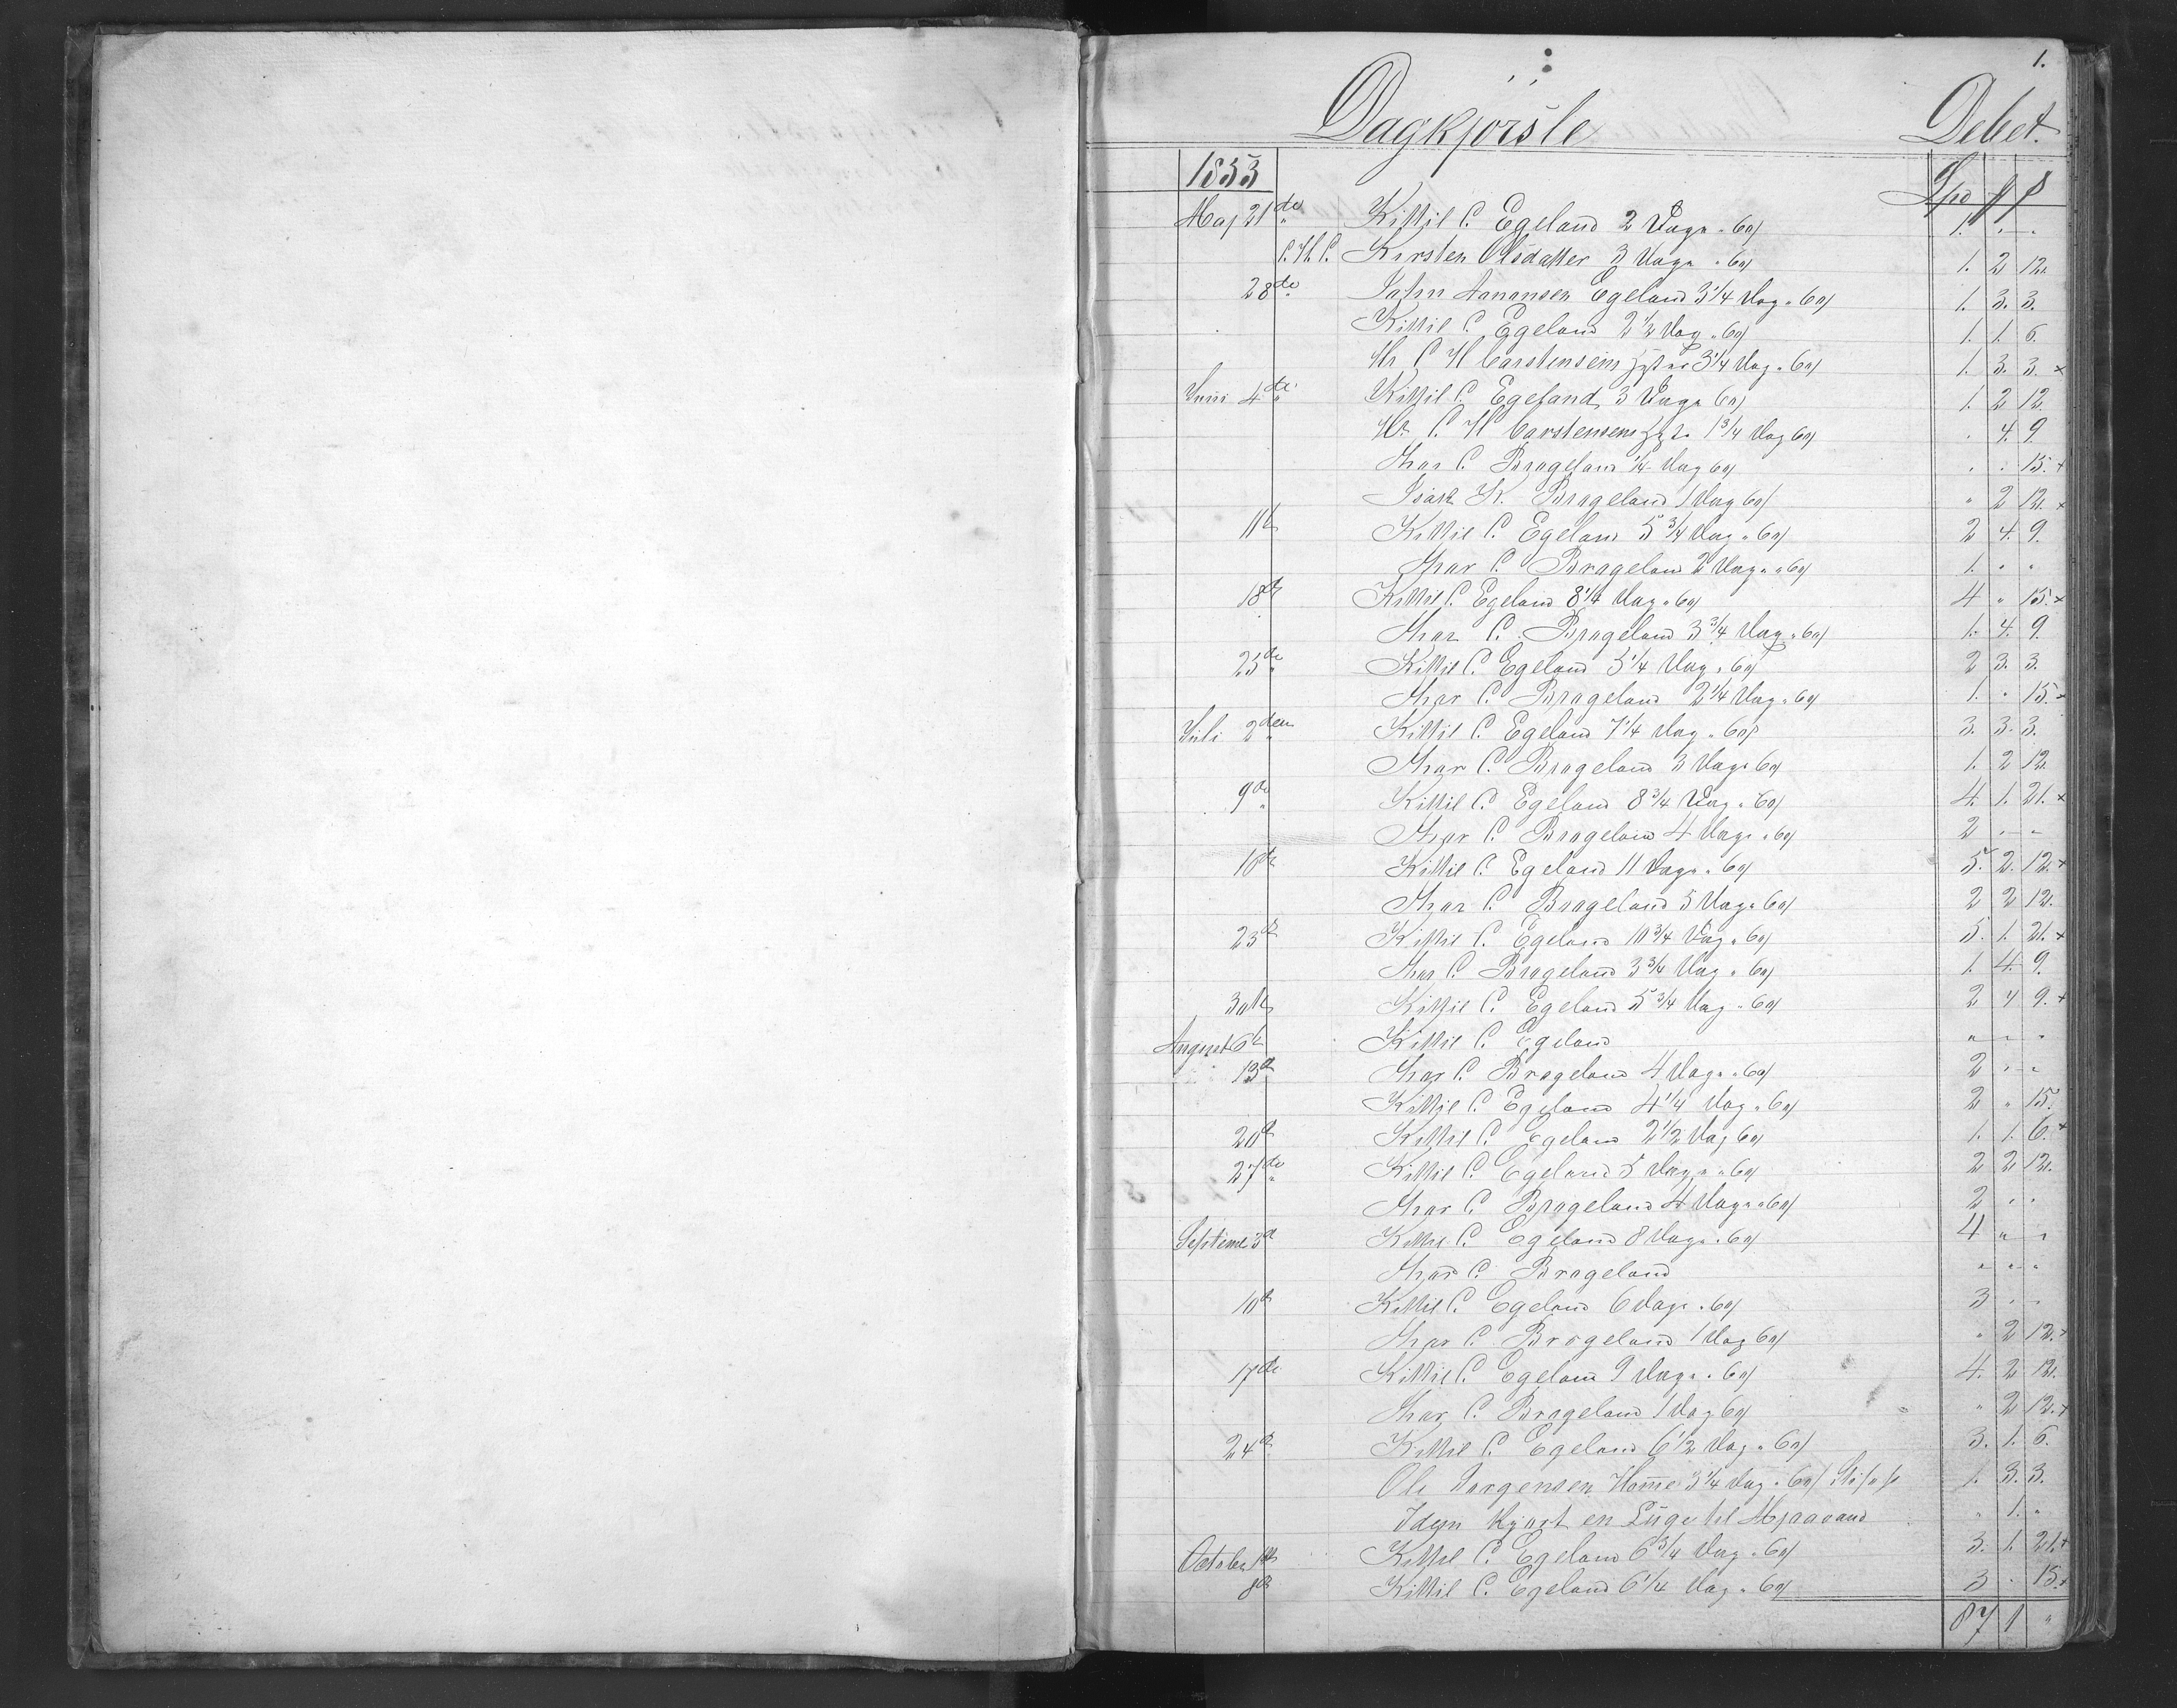 1.
Dagkjørsle Debet.
1853 Spd
Maj 21de Kittil C. Egeland 2 Dage 60/ 1. " "
C. H. C. Kirsten Olsdatter 3 Dage 60/ 1. 2 12.
28de Aanansen Egeland 3 1/4 Dag 60/ 1. 3. 3.
Kittil C. Egeland 2 1/2 Dag 60/ 1. 1. 6.
Hr C H Carstensens 3 1/4 Dag 60/ 1. 3. 3. x
Juni 4de Kittil C. Egeland 3 Dage 60/ 1. 2 12.
Hr C. H Carstensens 1 3/4 Dag 60/ . 4. 9.
C. Brageland 1/4 Dag 60/ . . 15. x
Isak K. Brageland 1 Dag 60/ " 2 12. x
11te Kittil C. Egeland 5 3/4 Dag 60/ 2 4. 9.
C. Brageland 2 Dage 60/ 1. " "
18de Kittil C. Egeland 8 1/4 Dag 60/ 4 " 15. x
C. Brageland 3 3/4 Dag 60/ 1. 4. 9.
25de Kittil C. Egeland 5 1/4 Dag 60/ 2 3. 3.
C. Brageland 2 1/4 Dag 60/ 1. " 15. x
Juli 2den Kittil C. Egeland 7 1/4 Dag 60/ 3. 3. 3.
C. Brageland 3 Dage 60/ 1. 2 12.
9de Kittil C. Egeland 8 3/4 Dag 60/ 4. 1. 21. x
C. Brageland 4 Dage 60/ 2 " "
16de Kittil C. Egeland 11 Dage 60/ 5. 2. 12. x
C. Brageland 5 Dage 60/ 2 2 12.
23de Kittil C. Egeland 10 3/4 Dag 60/ 5. 1. 21. x
C. Brageland 3 3/4 Dag 60/ 1. 4. 9.
30te Kittil C. Egeland 5 3/4 Dag 60/ 2 4 9. x
August 6te Kittil C. Egeland " " "
13de C. Brageland 4 Dage 60/ 2 " "
Kittil C. Egeland 4 1/4 Dag 60/ 2 " 15.
20de Kittil C. Egeland 2 1/2 Dag 60/ 1. 1. 6. x
27de Kittil C. Egeland 5 Dage 60/ 2 2 12.
C. Brageland 4 Dage 60/ 2 " "
Septembe 3d Kittil C. Egeland 8 Dage 60/ 4 " "
C. Brageland " " "
10de Kittil C. Egeland 6 Dage 60/ 3 " "
C. Brageland 1 Dag 60/ " 2 12. x
17de Kittil C. Egeland 9 Dage 60/ 4. 2 12.
C. Brageland 1 Dag 60/ " 2 12. x
24de Kittil C. Egeland 6 1/2 Dag 60/ 3. 1. 6.
Ole Jørgensen Home 3 1/4 Dag 60/ 1. 3. 3.
Idem Kjørt en til " 1. "
October 1te Kittil C. Egeland 6 3/4 Dag 60/ 3. 1. 21. x
8de Kittil C. Egeland 6 1/4 Dag 60/ 3 . 15. x
87 1 "